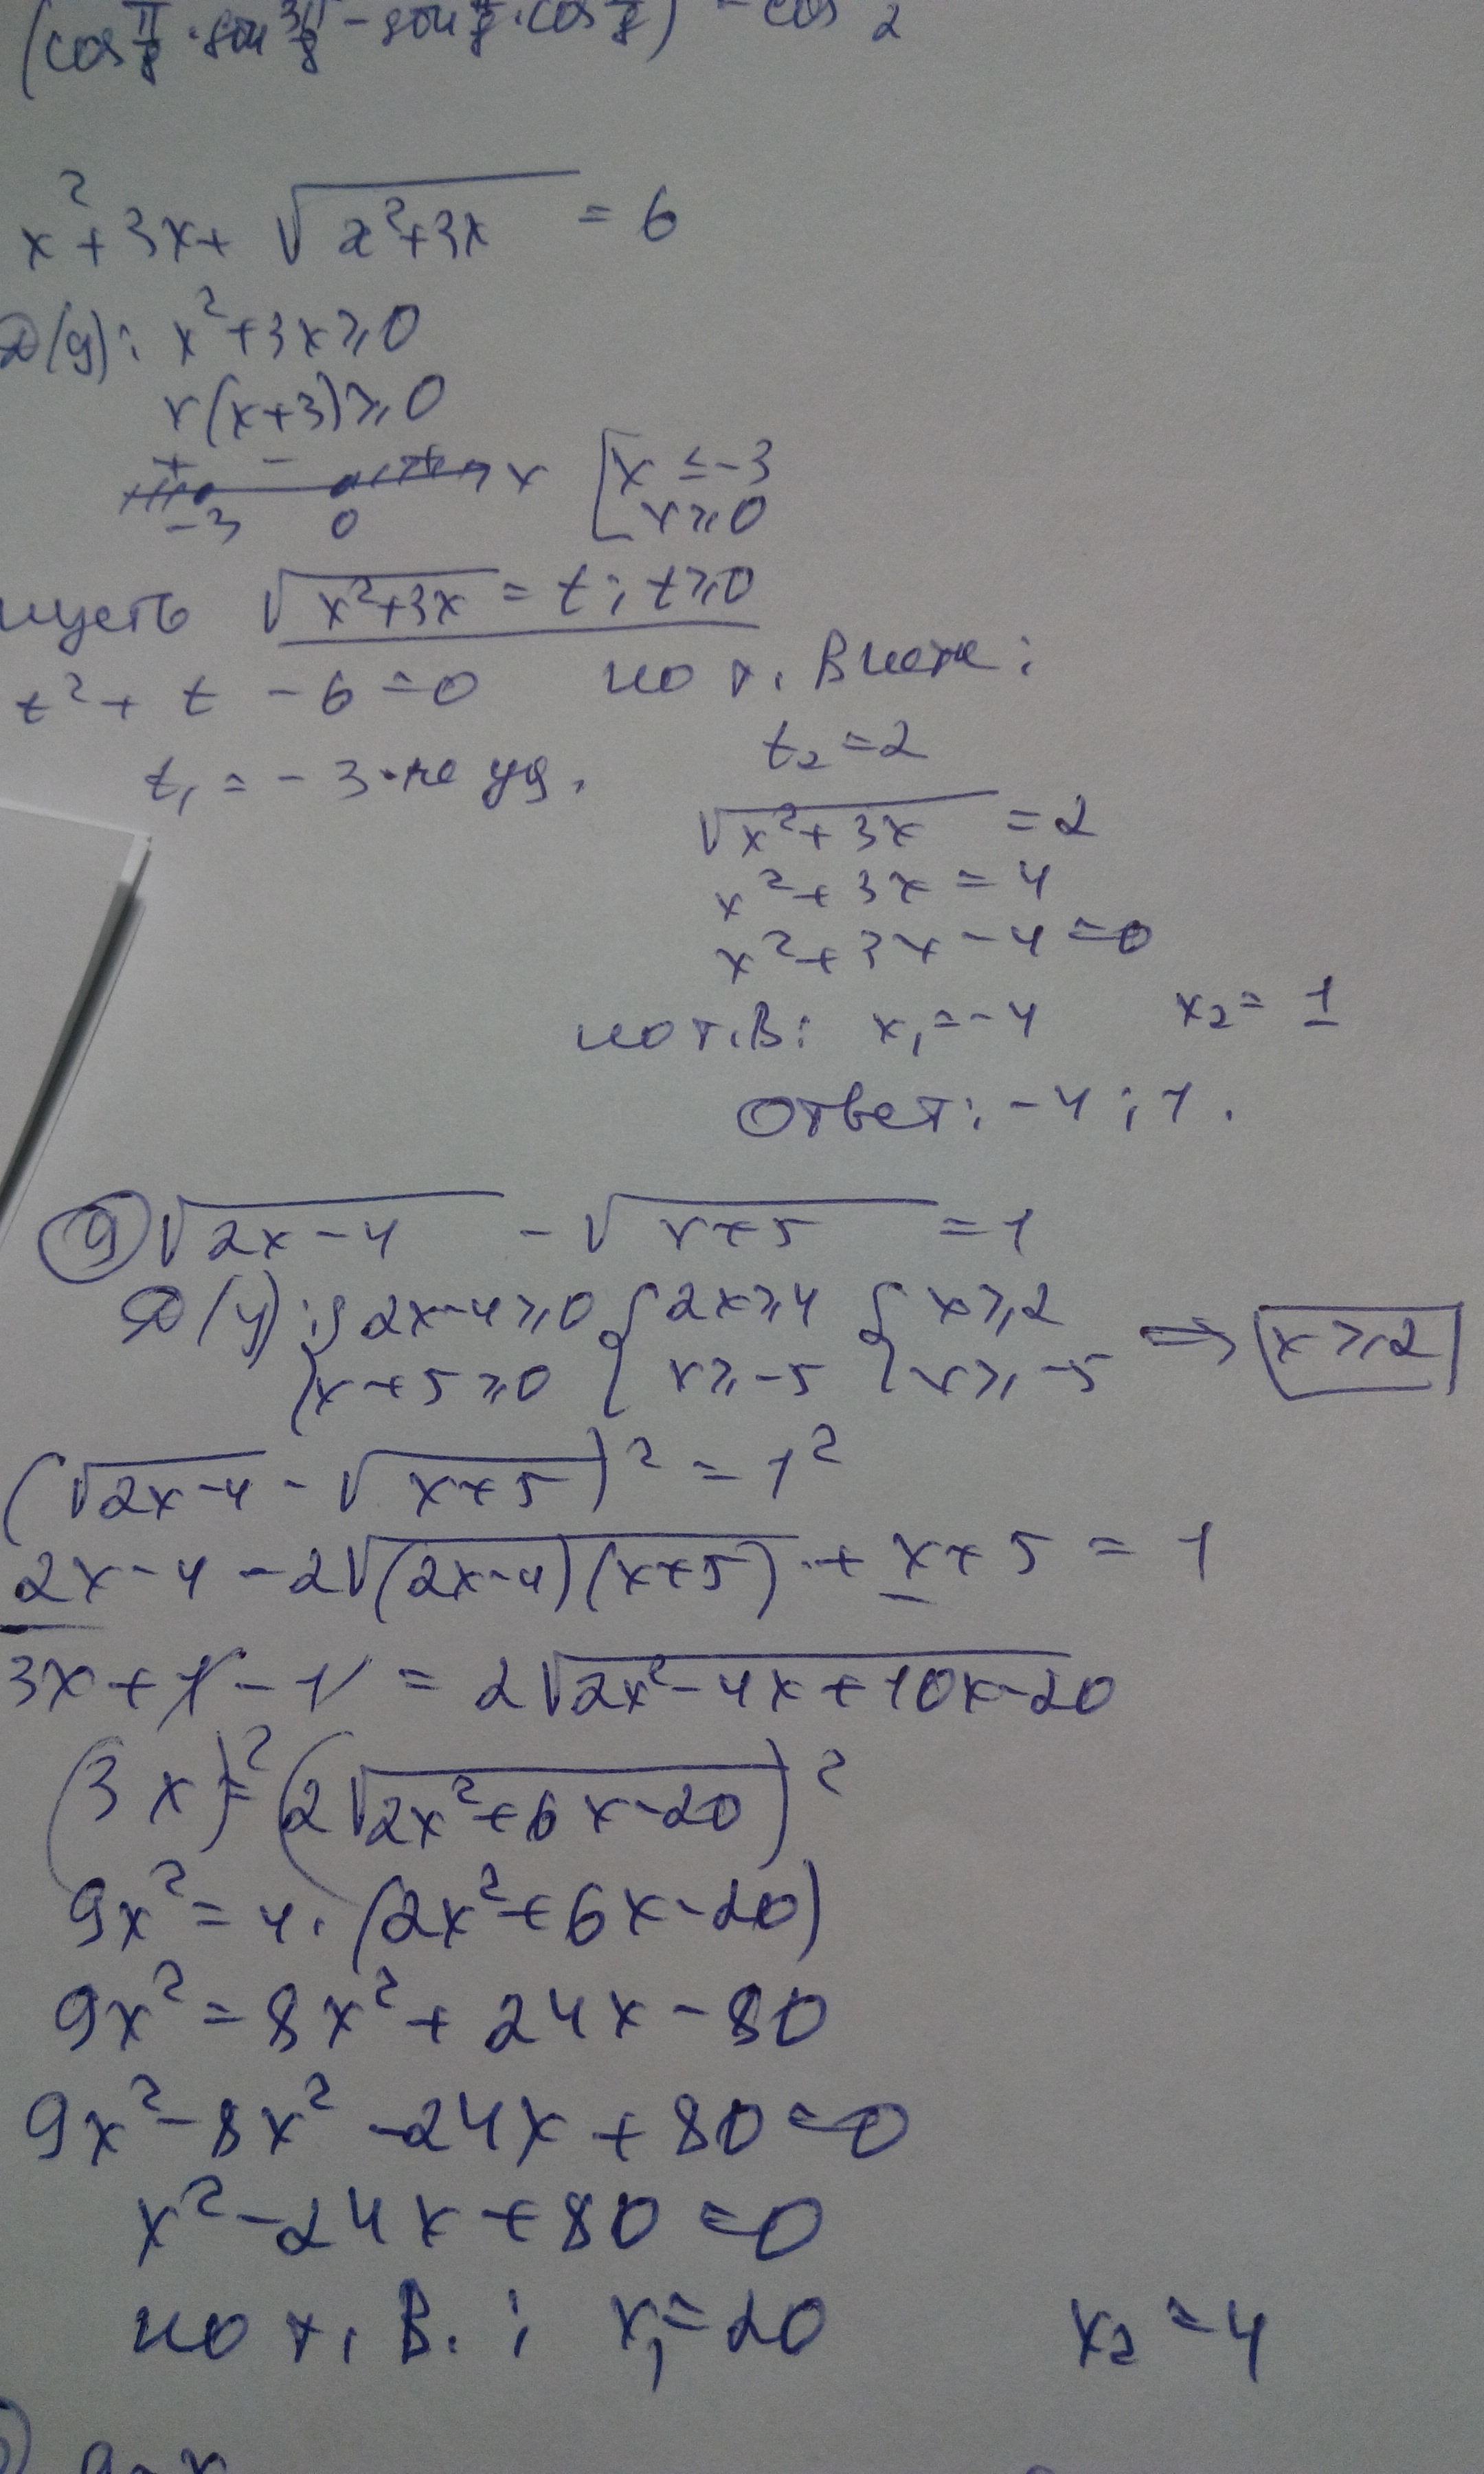 (cos π/8 · sin 3π/8 - sin π/8 · cos π/8) - cos 2
x²+3x+ √(x²+3x) = 6
D(y): x²+3x≥0
x(x+3)≥0
+ - + x [x ≤ -3
-3 0 x≥0
пусть √(x²+3x) = t; t≥0
t²+ t - 6 = 0 по т. Виета:
t₁ = -3 - не уд. t₂ = 2
√(x²+3x) = 2
x²+3x = 4
x²+3x-4=0
по т.В: x₁=-4 x₂= 1
Ответ: -4; 1.
9) √(2x-4) - √(x+5) = 1
D(y): {2x-4≥0 {2x≥4 {x≥2 ⇒ x≥2
{x+5≥0 {x≥-5 {x≥-5
(√(2x-4) - √(x+5))² = 1²
2x-4-2√((2x-4)(x+5)) + x+5 = 1
3x+1-1 = 2√(2x²-4x+10x-20)
(3x)²=(2√(2x²+6x-20))²
9x²=4·(2x²+6x-20)
9x²=8x²+24x-80
9x²-8x²-24x+80=0
x²-24x+80=0
по т. В.: x₁=20 x₂=4